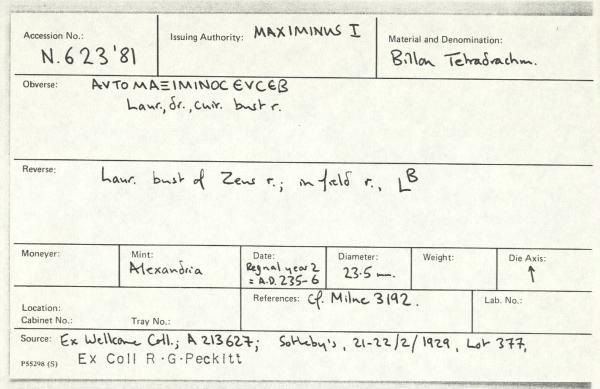 Accession No.: N.623'81
Issuing Authority: MAXIMINUS I
Material and Denomination: Billon Tetradrachm.
Obverse: ΑVΤΟ ΜΑΞΙΜΙΝΟC ЄVCЄΒ
Laur., dr., cuir. bust r.
Reverse: Laur. bust of Zeus r.; in field r., L B
Moneyer:
Mint: Alexandria
Date: Regnal year 2
= A.D. 235-6
Diameter: 23.5 mm.
Weight:
Die Axis: ↑
Location:
Cabinet No.: Tray No.:
References: Cf. Milne 3192.
Lab. No.:
Source: Ex Wellcome Coll.; A 213627; Sotheby's, 21-22/2/1929, Lot 377,
P55298 (S) Ex Coll R.G.Peckitt